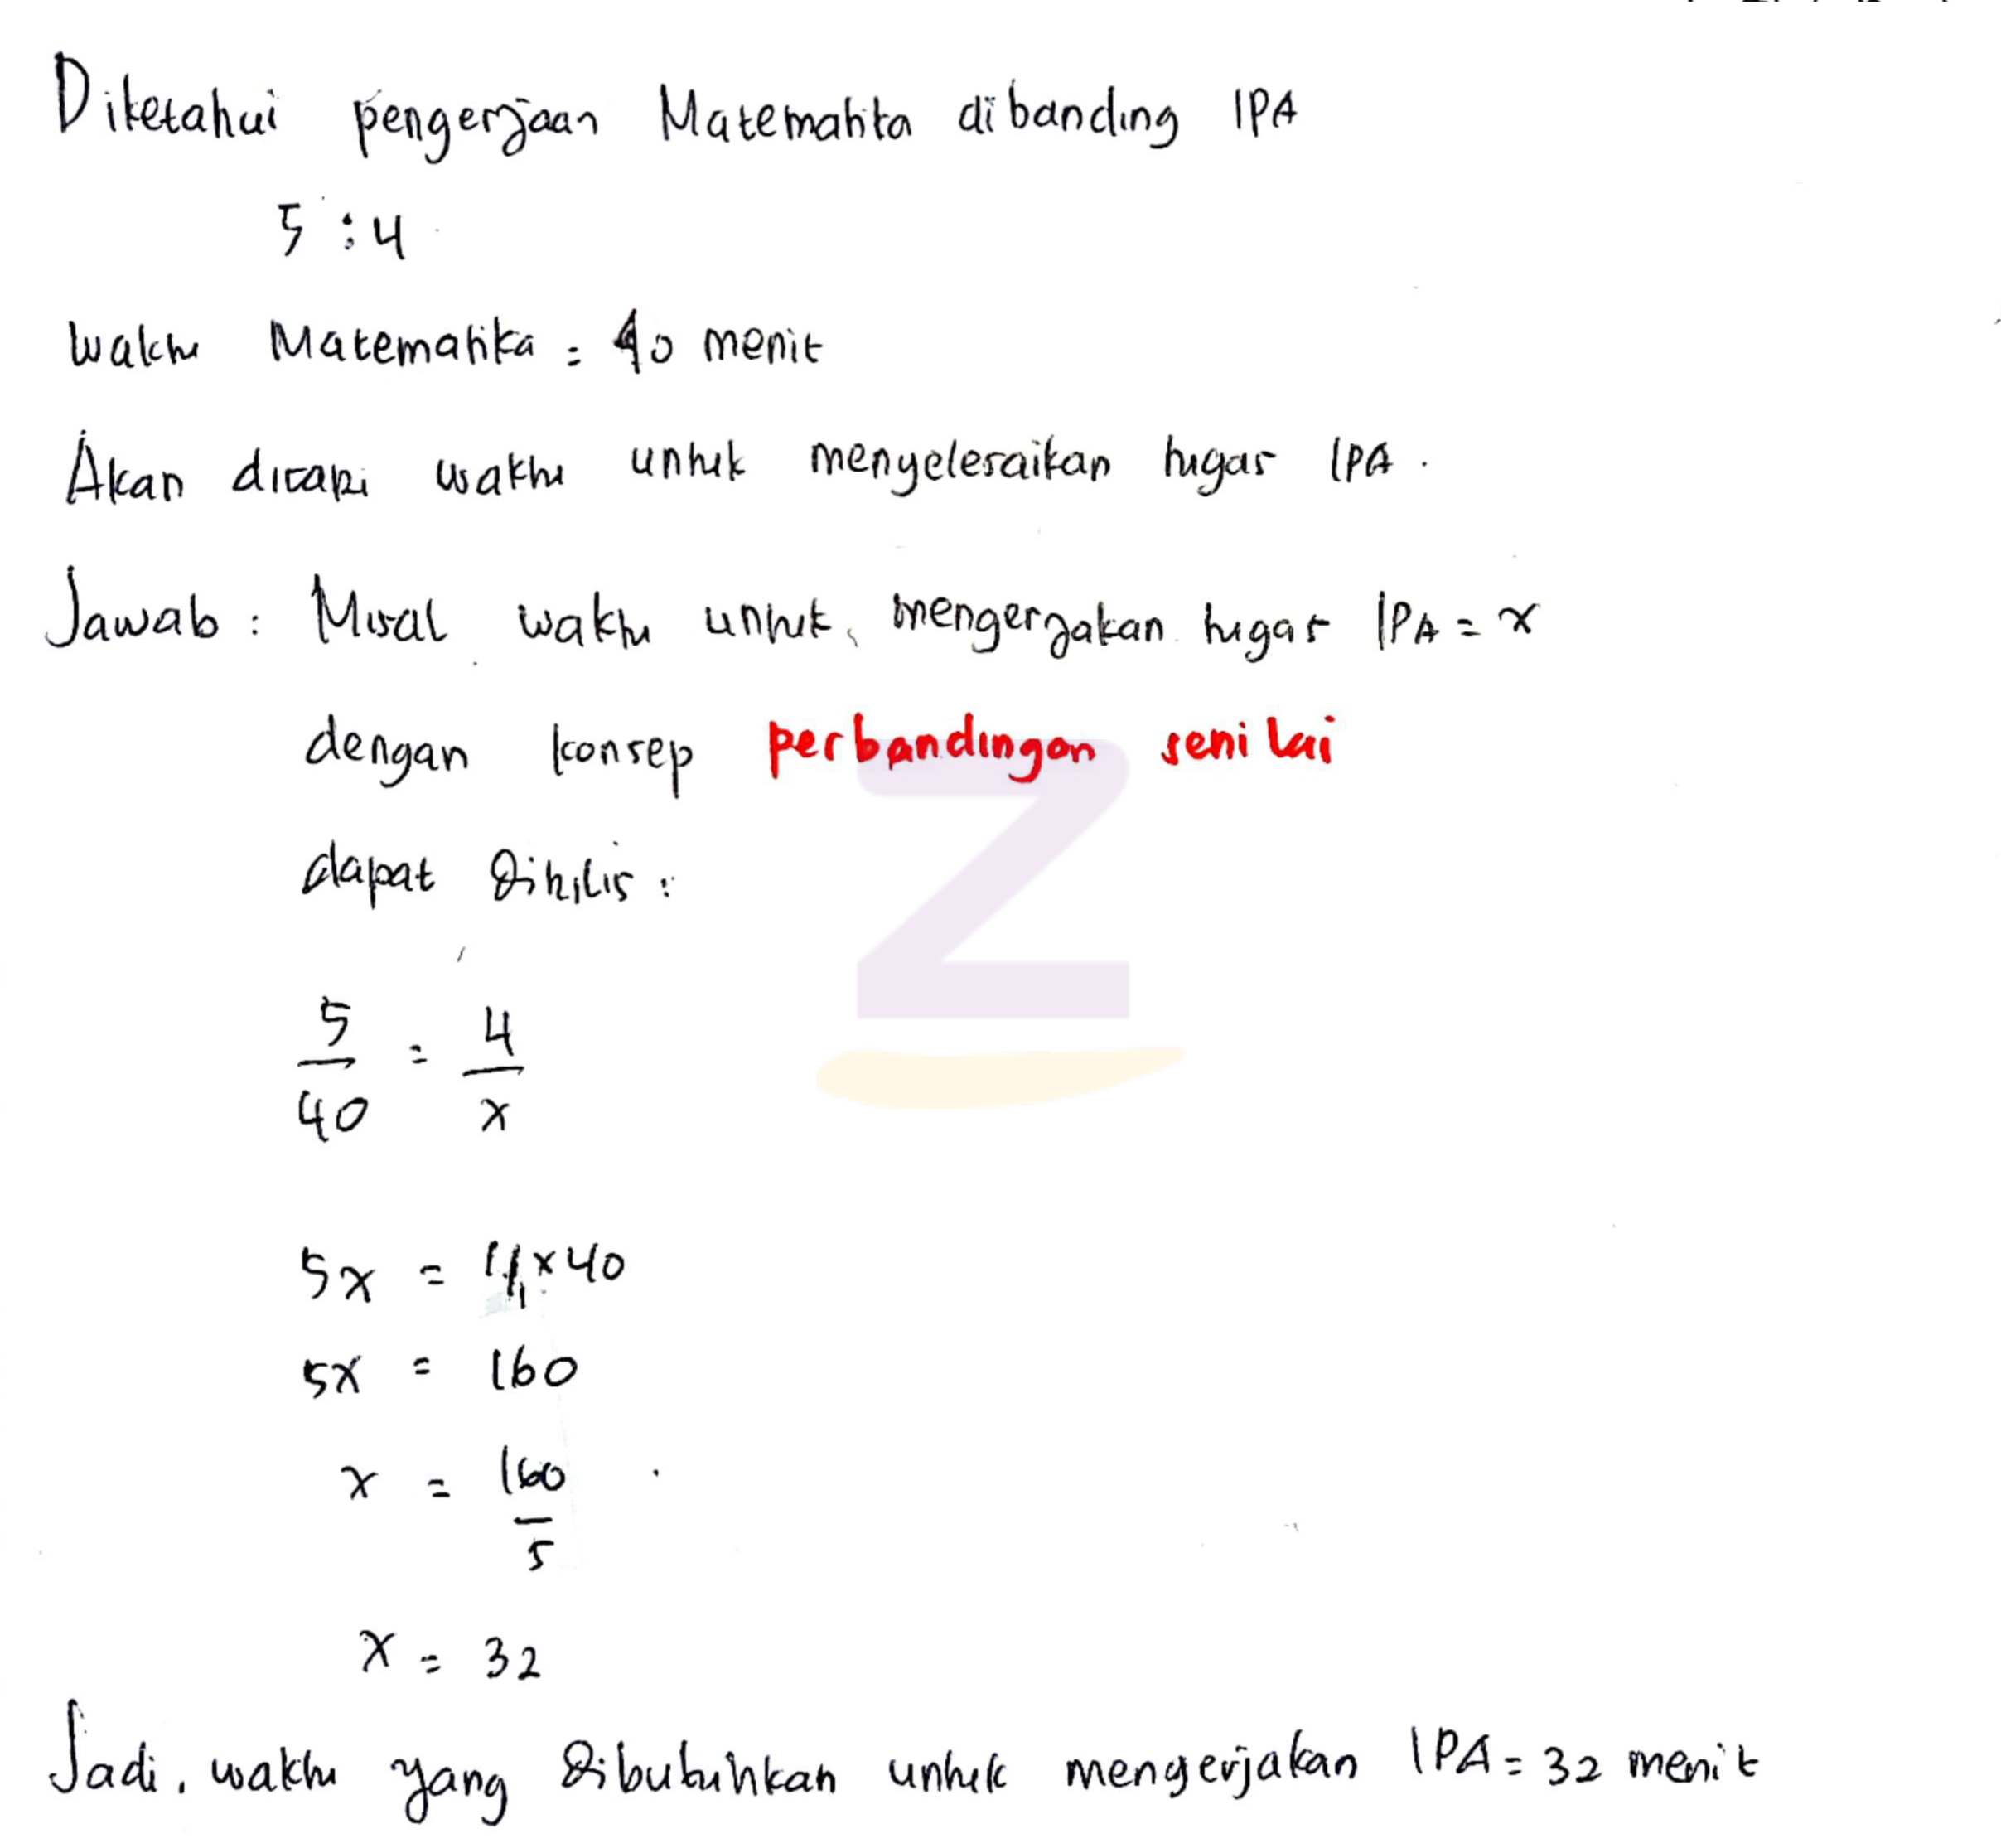 Diketahui pengerjaan Matematika dibanding IPA
5 : 4
waktu Matematika = 40 menit
Akan dicari waktu untuk menyelesaikan tugas IPA.
Jawab : Misal waktu untuk mengerjakan tugas IPA = x
dengan konsep perbandingan senilai
dapat ditulis :
5/40 = 4/x
5x = 4 x 40
5x = 160
x = 160/5
x = 32
Jadi, waktu yang dibutuhkan untuk mengerjakan IPA = 32 menit
Z